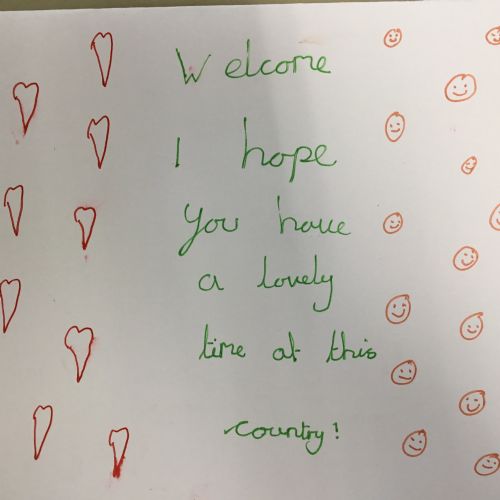 Welcome
I hope
you have
a lovely
time at this
country!